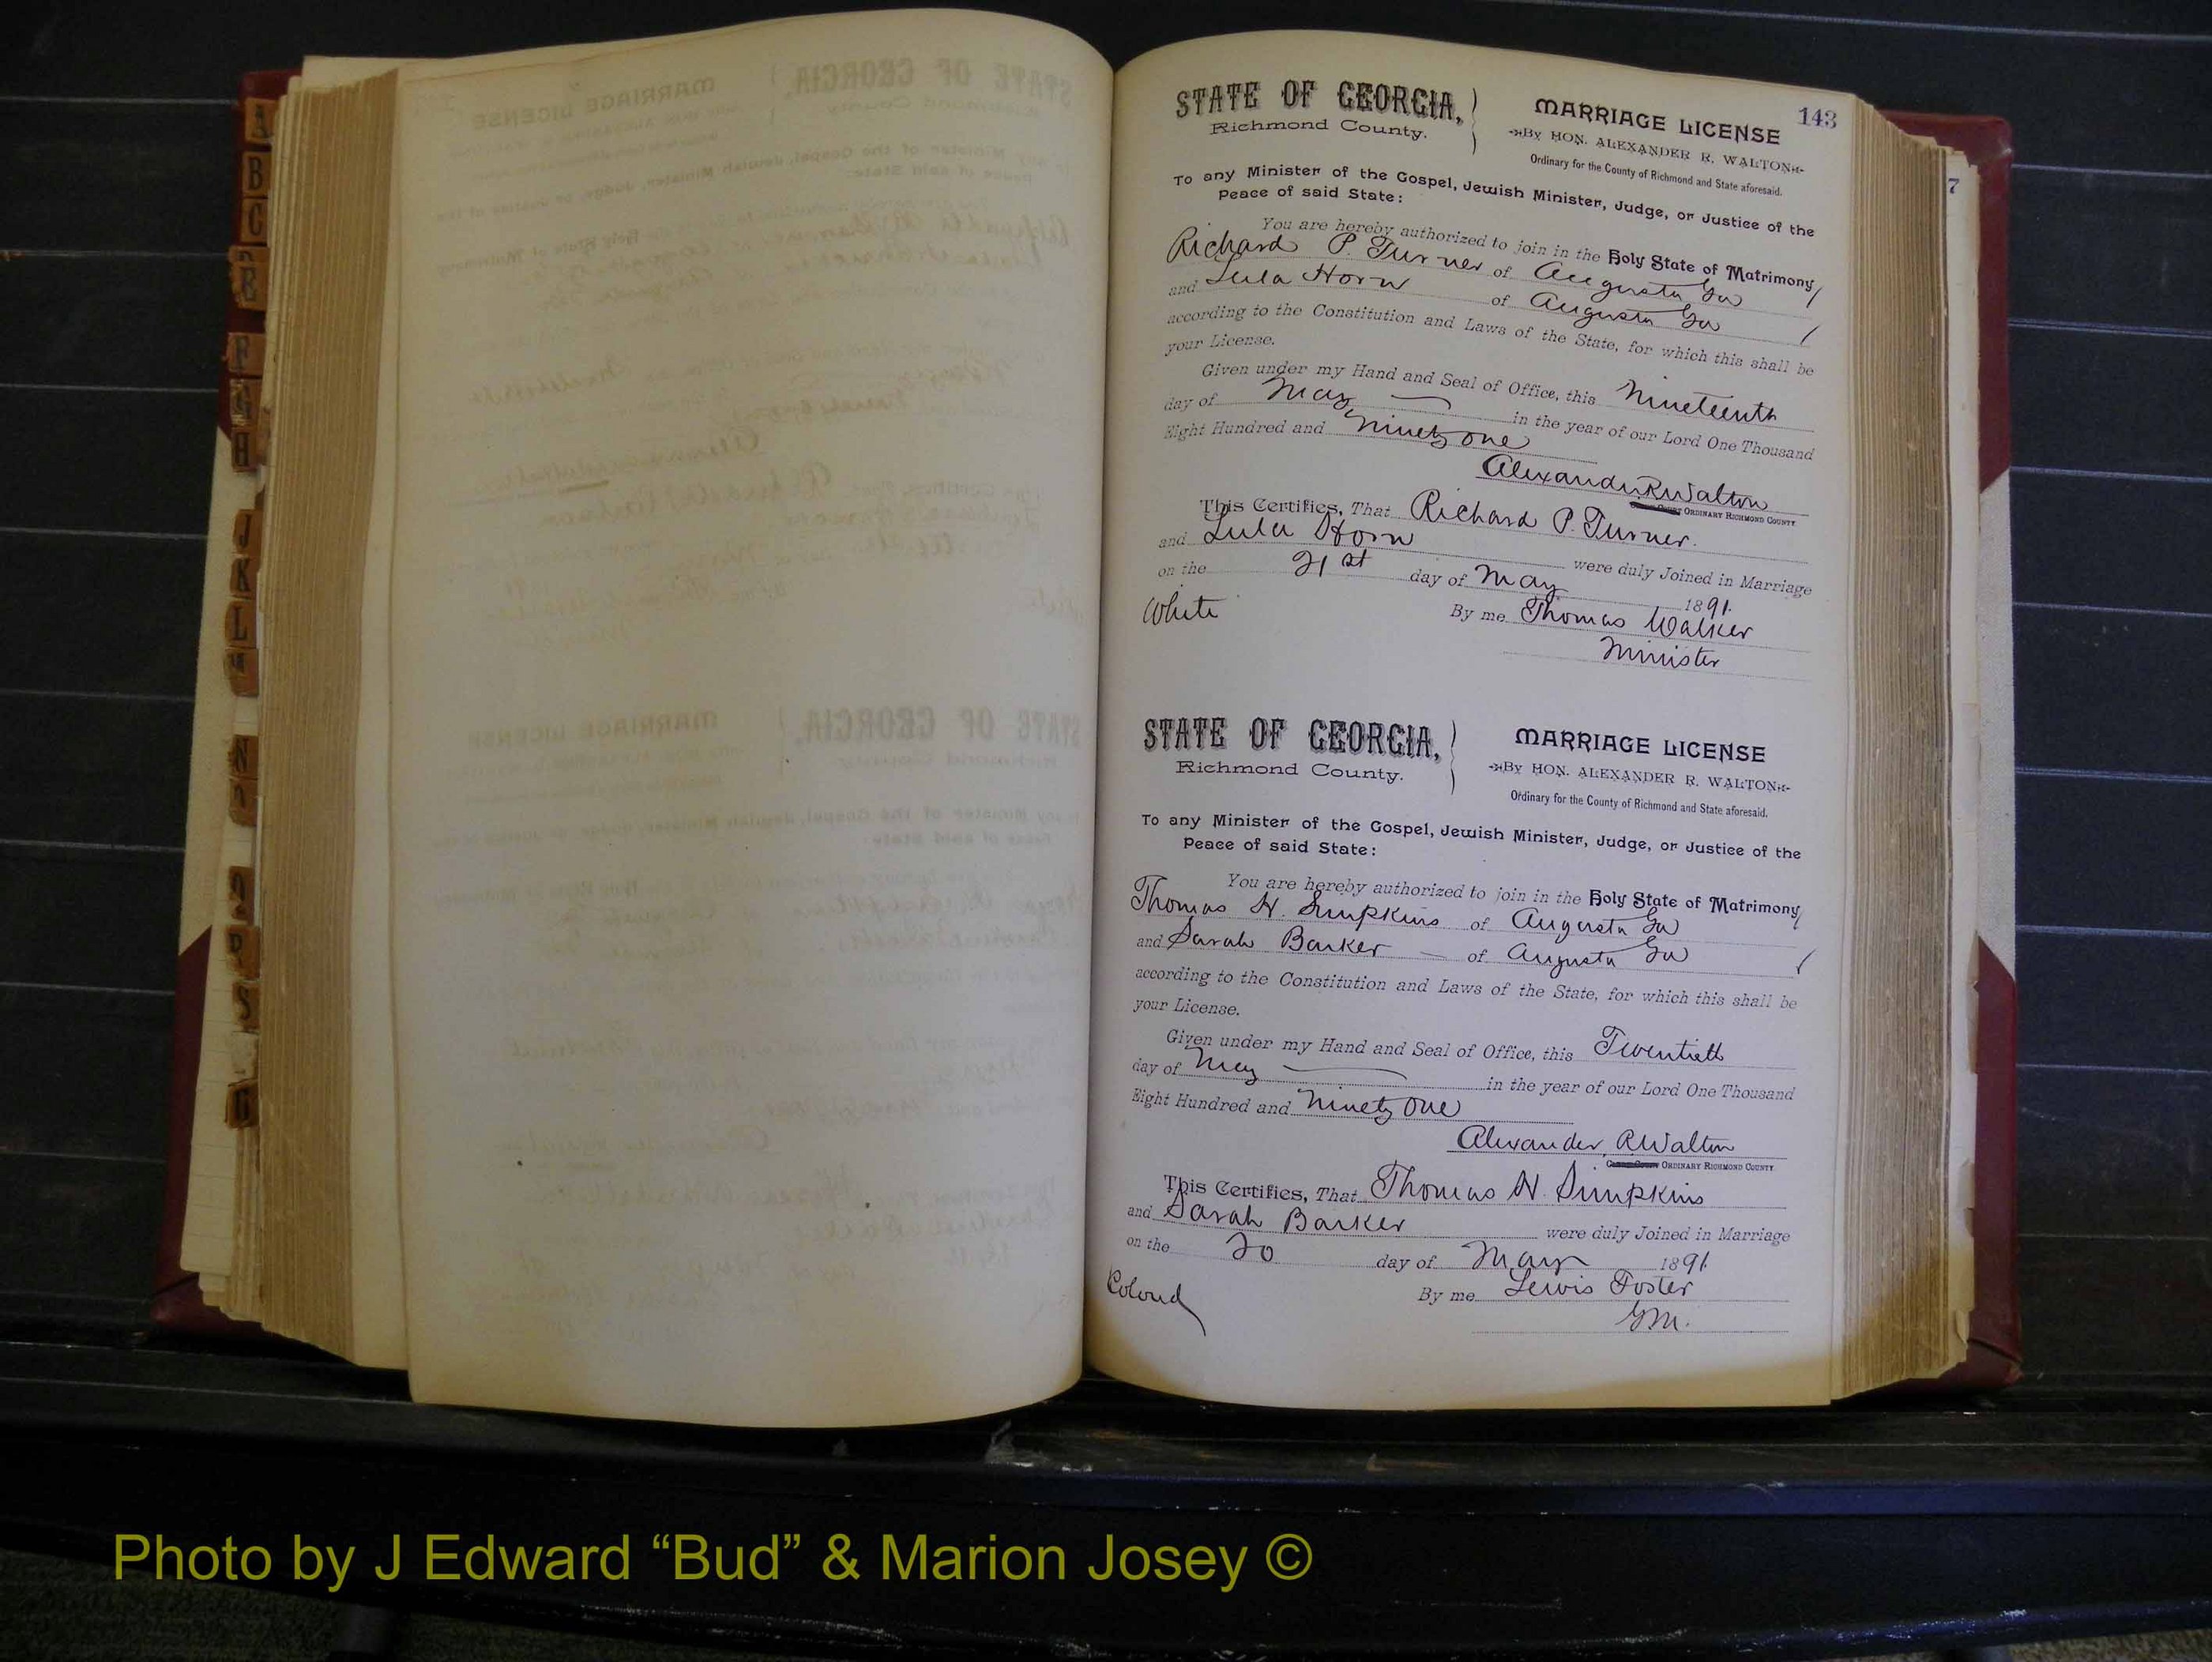 A
B
C
E
F
G
H
J
K
L
M
N
O
Q
P
S
G
143
7
STATE OF GEORGIA,
Richmond County.
MARRIAGE LICENSE
By HON. ALEXANDER R. WALTON
Ordinary for the County of Richmond and State aforesaid.
To any Minister of the Gospel, Jewish Minister, Judge, or Justice of the
Peace of said State:
You are hereby authorized to join in the Holy State of Matrimony
Richard P. Turner of Augusta Ga
and Lula Horn of Augusta Ga
according to the Constitution and Laws of the State, for which this shall be
your License.
Given under my Hand and Seal of Office, this Nineteenth
day of May in the year of our Lord One Thousand
Eight Hundred and Ninety one
Alexander R Walton
ORDINARY RICHMOND COUNTY
This Certifies, That Richard P. Turner.
and Lula Horn were duly Joined in Marriage
on the 21st day of May 1891.
White By me Thomas Walker
Minister
STATE OF GEORGIA,
Richmond County.
MARRIAGE LICENSE
By HON. ALEXANDER R. WALTON
Ordinary for the County of Richmond and State aforesaid.
To any Minister of the Gospel, Jewish Minister, Judge, or Justice of the
Peace of said State:
You are hereby authorized to join in the Holy State of Matrimony
Thomas H. Simpkins of Augusta Ga
and Sarah Barker of Augusta Ga
according to the Constitution and Laws of the State, for which this shall be
your License.
Given under my Hand and Seal of Office, this Twentieth
day of May in the year of our Lord One Thousand
Eight Hundred and Ninety One
Alexander R Walton
ORDINARY RICHMOND COUNTY
This Certifies, That Thomas H. Simpkins
and Sarah Barker were duly Joined in Marriage
on the 20 day of May 1891.
Colored By me Lewis Foster
GM.
Photo by J Edward “Bud” & Marion Josey ©